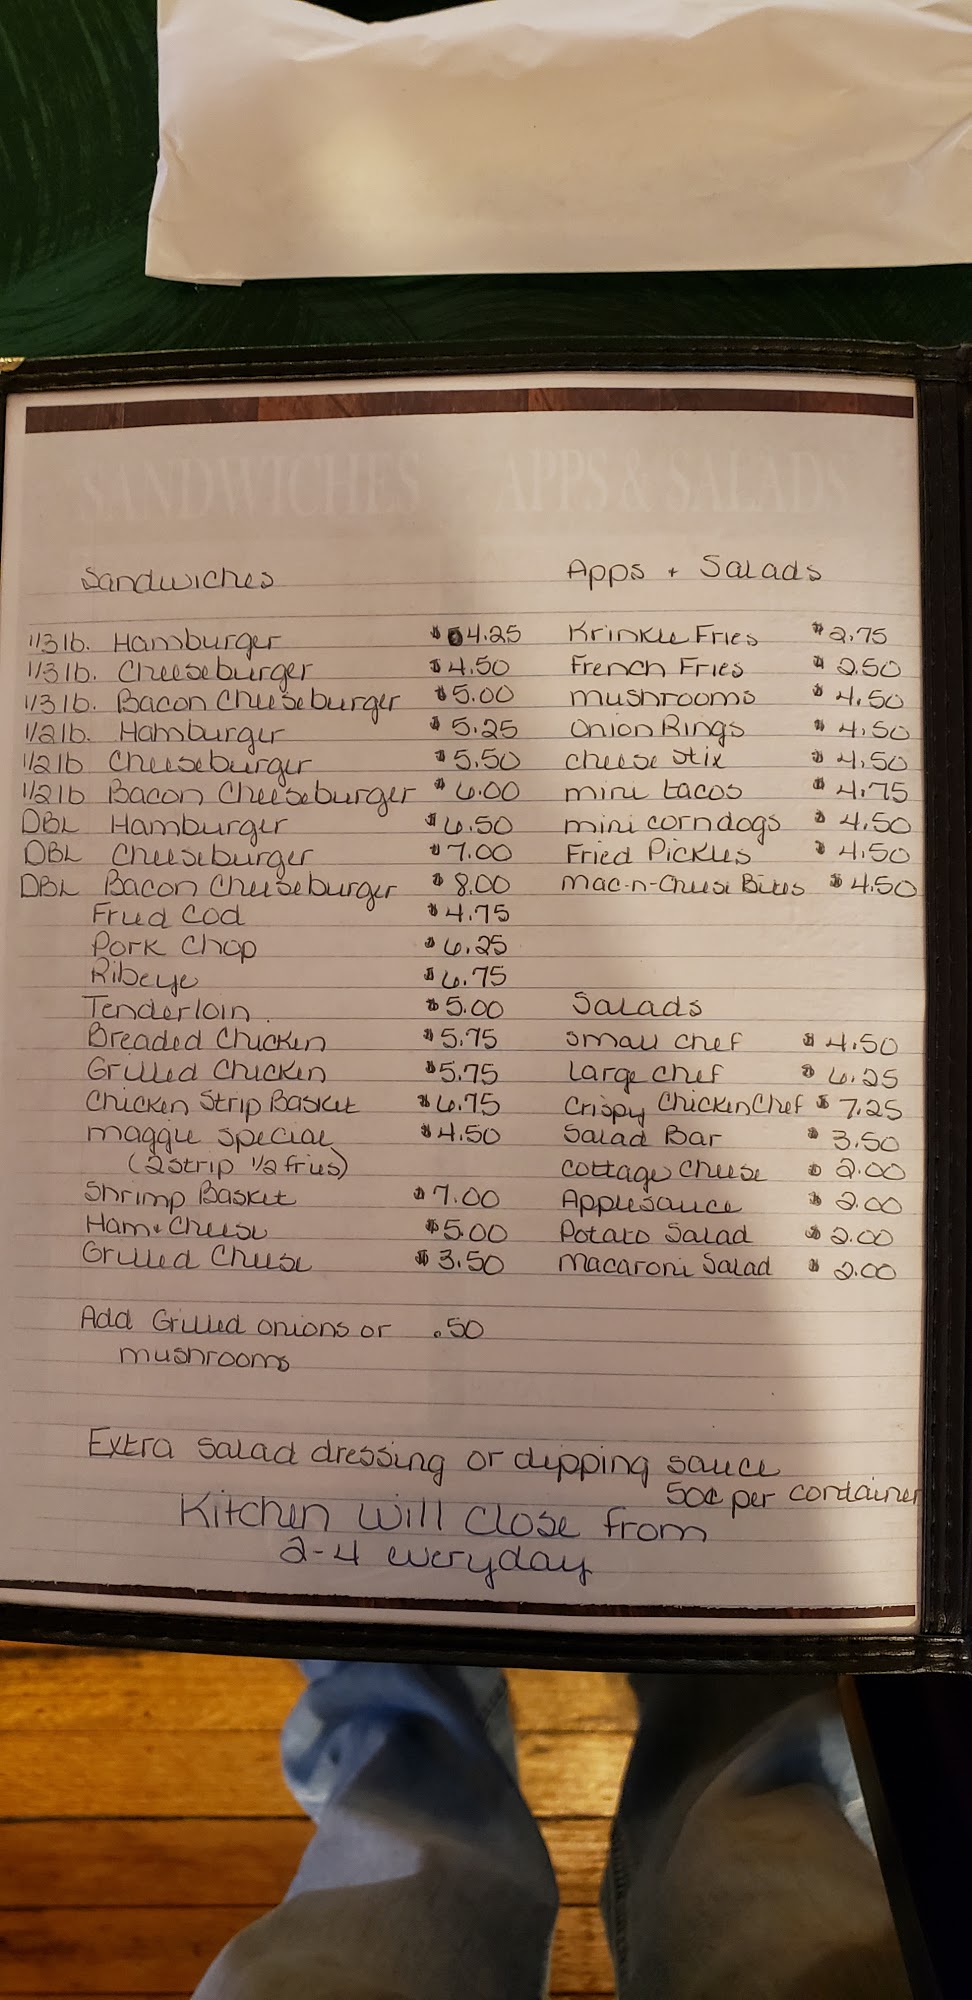 SANDWICHES APPS & SALADS
Sandwiches
1/3 lb. Hamburger $4.25
1/3 lb. Cheeseburger $4.50
1/3 lb. Bacon Cheeseburger $5.00
1/2 lb. Hamburger $5.25
1/2 lb Cheeseburger $5.50
1/2 lb Bacon Cheeseburger $6.00
DBL Hamburger $6.50
DBL Cheeseburger $7.00
DBL Bacon Cheeseburger $8.00
Fried Cod $4.75
Pork Chop $6.25
Ribeye $6.75
Tenderloin $5.00
Breaded Chicken $5.75
Grilled Chicken $5.75
Chicken Strip Basket $6.75
Maggie Special $4.50
(2 strip 1/2 fries)
Shrimp Basket $7.00
Ham + Cheese $5.00
Grilled Cheese $3.50
Add Grilled onions or .50
mushrooms
Apps + Salads
Krinkle Fries $2.75
French Fries $2.50
mushrooms $4.50
Onion Rings $4.50
cheese stix $4.50
mini tacos $4.75
mini corndogs $4.50
Fried Pickles $4.50
Mac-n-Cheese Bites $4.50
Salads
Small Chef $4.50
Large Chef $6.25
Crispy Chicken Chef $7.25
Salad Bar $3.50
Cottage Cheese $2.00
Applesauce $2.00
Potato Salad $2.00
Macaroni Salad $2.00
Extra salad dressing or dipping sauce
50¢ per container
Kitchen will close from
2-4 everyday